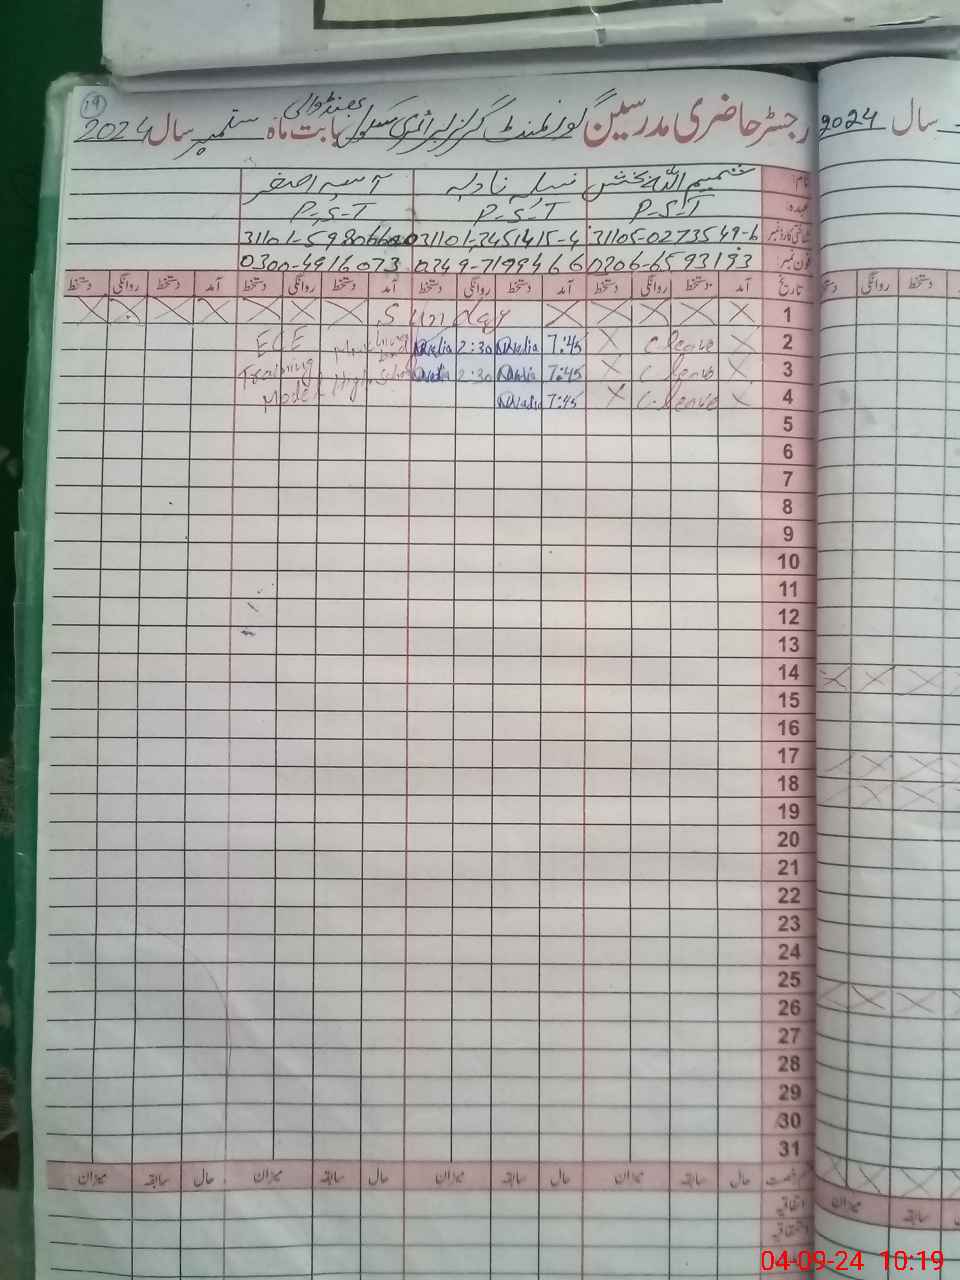 19
رجسٹر حاضری مدرسین گورنمنٹ گرلز پرائمری سکول بھنڈوالی بابت ماہ ستمبر سال 2024
سال 2024
نام: شمیم اللہ بخش نبیلہ نادیہ آسیہ اصغر
عہدہ P-S-T P-S-T P-S-T
شناختی کارڈ نمبر 31105-0273549-6 31101-3451415-4
فون نمبر: 0306-6593193 0349-7199466 0300-4916073
تاریخ آمد دستخط روانگی دستخط آمد دستخط روانگی دستخط آمد دستخط روانگی دستخط آمد دستخط روانگی دستخط
دستخط روانگی دستخط
1 Sunday
2 C leave 7:45 Nadia 2:30 Nadia ECE
3 C leave 7:45 Nadia 2:30 Nadia Training
4 C-leave 7:45 Nadia Model High School
5
6
7
8
9
10
11
12
13
14
15
16
17
18
19
20
21
22
23
24
25
26
27
28
29
30
31
رخصت حال سابقہ میزان حال سابقہ میزان حال سابقہ میزان حال سابقہ میزان
سابقہ میزان
اتفاقیہ
استحقاقیہ
04-09-24 10:19